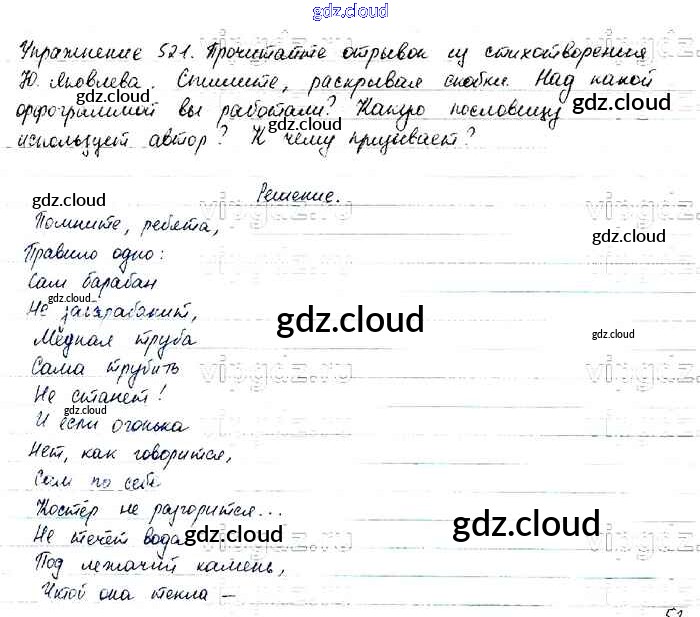 gdz.cloud
Упражнение 521. Прочитайте отрывок из стихотворения
Ю. Яковлева. Спишите, раскрывая скобки. Над какой
gdz.cloud
gdz.cloud
орфограммой вы работали? Какую пословицу
gdz.cloud
использует автор? К чему призывает?
Решение.
gdz.cloud
vipgdz.ru
vipgdz.ru
Помните, ребята,
gdz.cloud
Правило одно:
Сам барабан
gdz.cloud
Не забарабанит,
gdz.cloud
Медная труба
gdz.cloud
Сама трубить
vipgdz.ru
vipgdz.ru
Не станет!
gdz.cloud
И если огонька
Нет, как говорится,
Сам по себе
Костёр не разгорится...
gdz.cloud
Не течёт вода
gdz.cloud
Под лежачий камень,
Чтоб она текла —